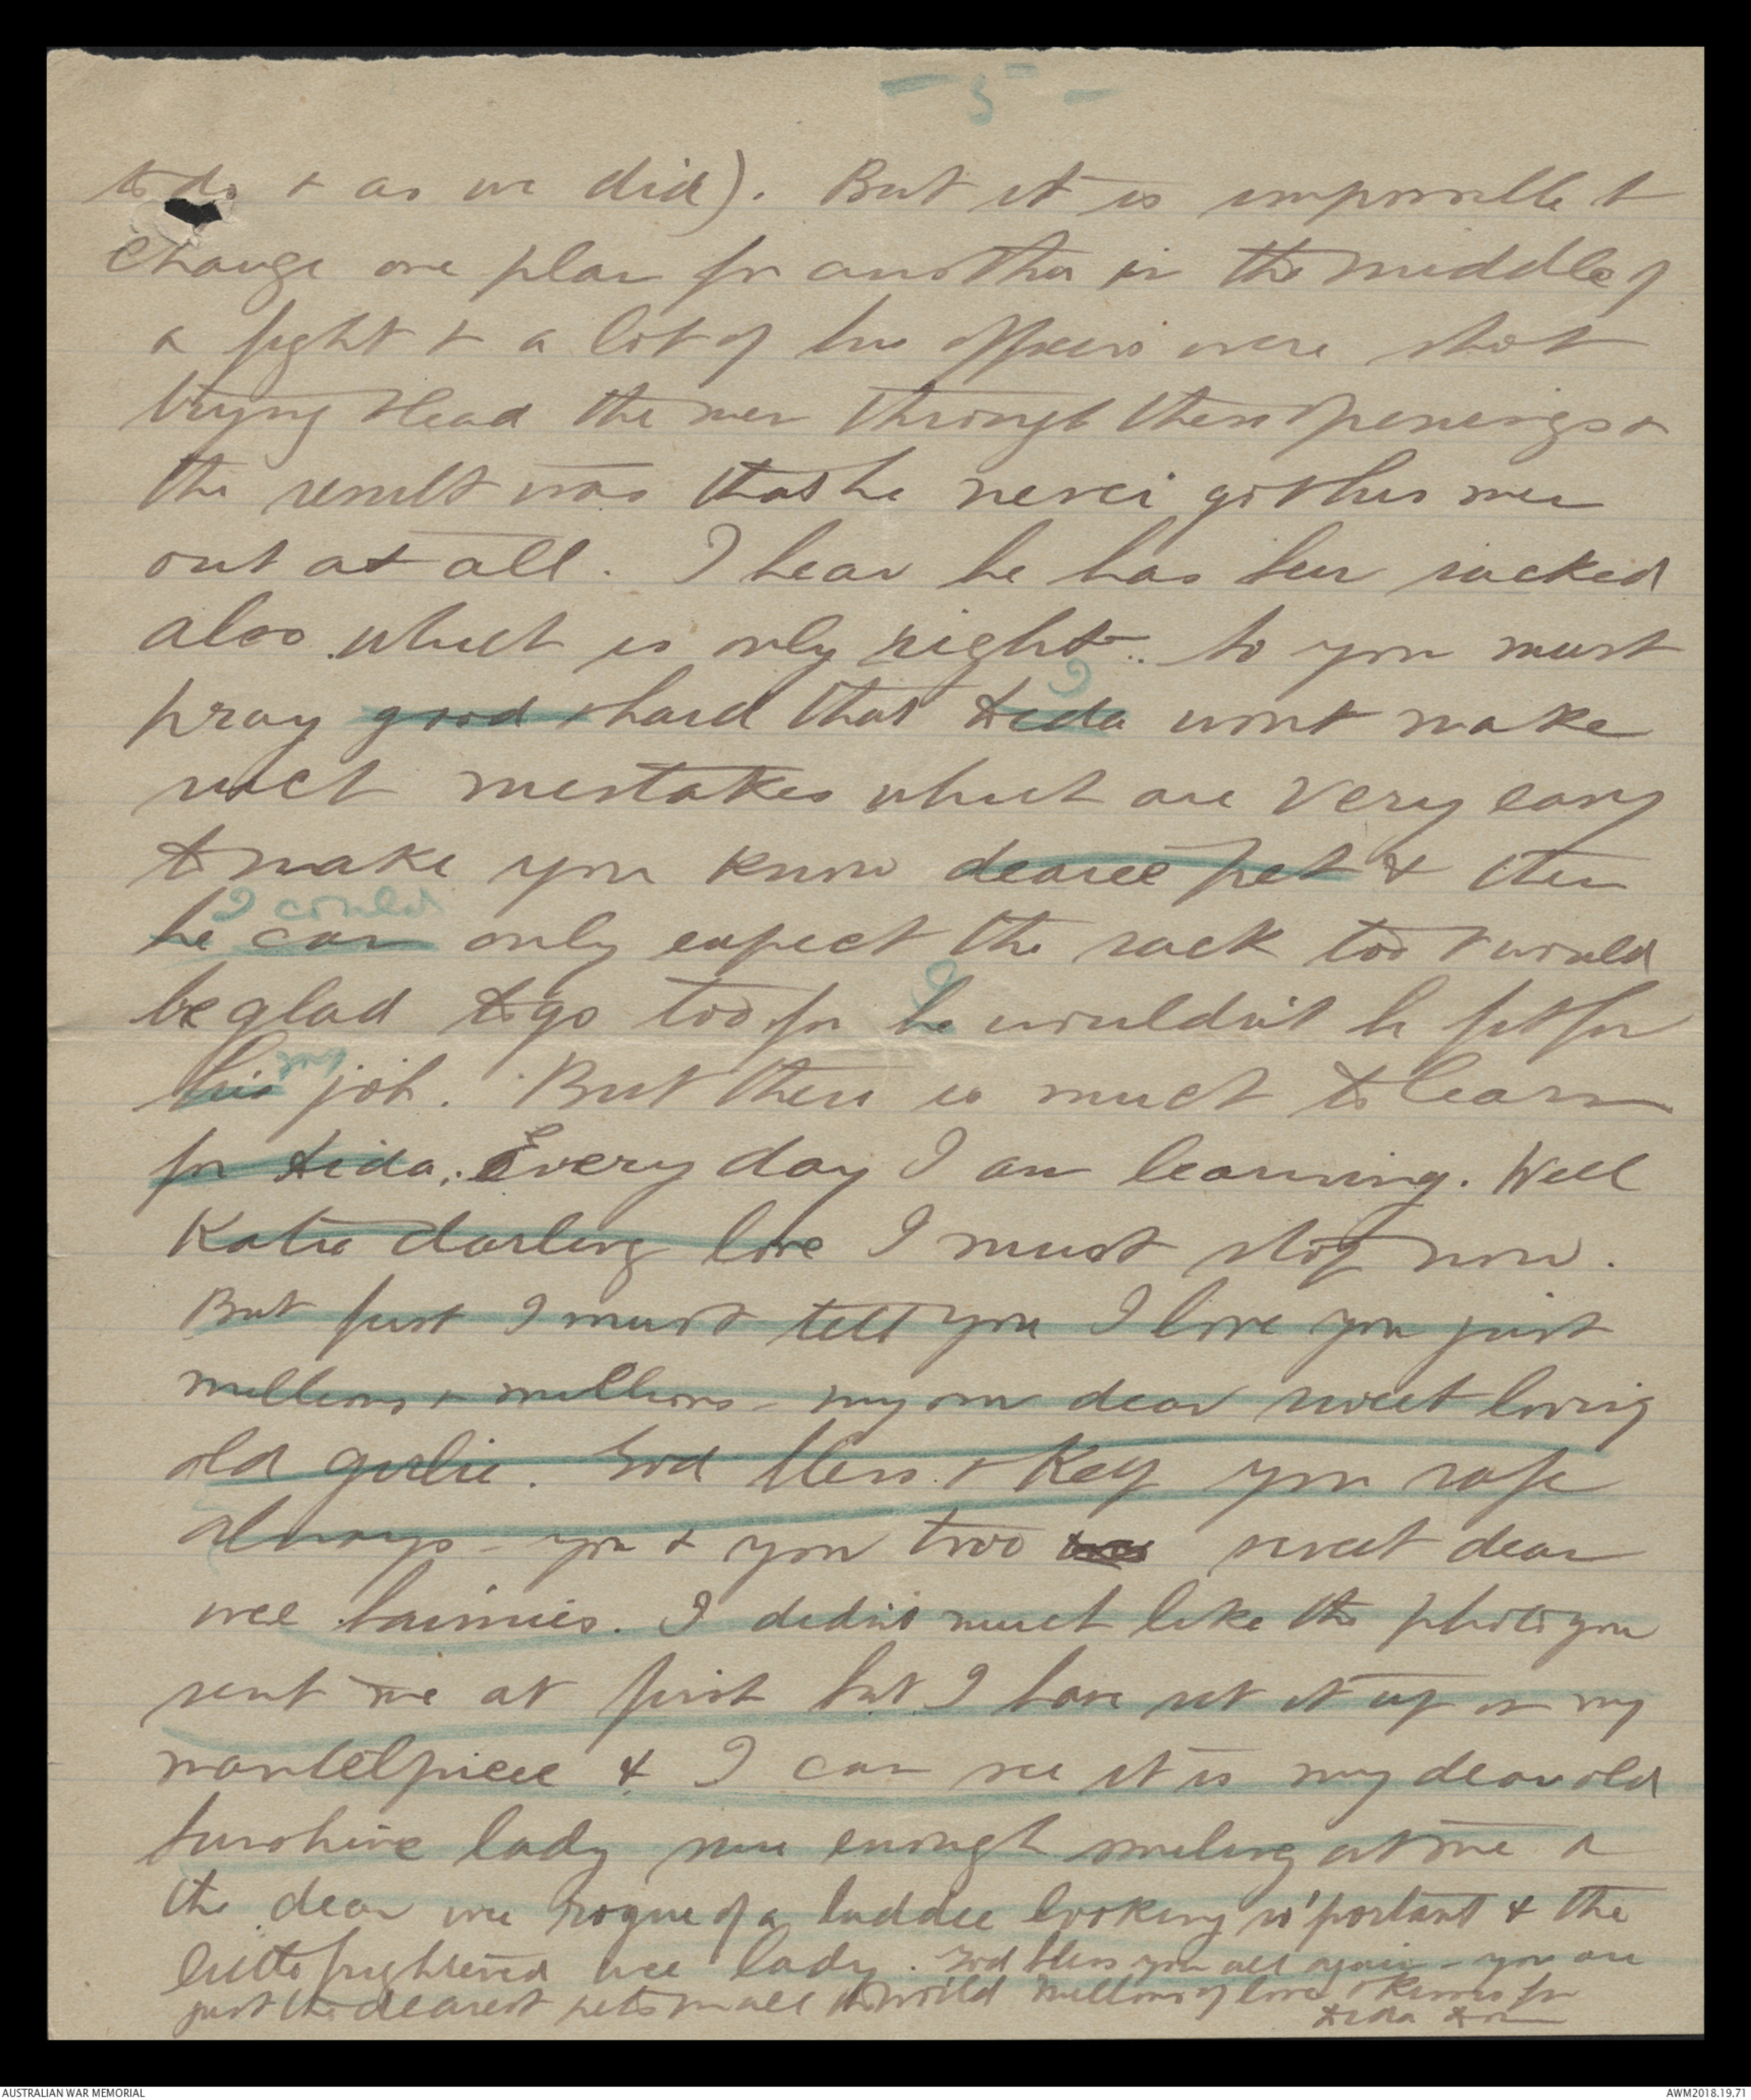 - 5 -
to do & as we did). But it is impossible to
change one plan for another in the middle of
a fight & a lot of his officers were shot
trying to lead the men through these openings &
the result was that he never got his men
out at all. I hear he has been sacked
also which is only right. So you must
I
pray good & hard that dida wont make
such mistakes which are very easy
to make you know dearee pet & then
I could
he can only expect the sack too & would
I
be glad to go too for he wouldn't be fit for
my
his job. But there is much to learn
for dida. Every day I am learning. Well
Katie darling love I must stop now.
But first I must tell you I love you just
millions & millions - my own dear sweet loving
old girlie. God bless & keep you safe
always - you & your two sweet dear
wee bairnies. I didn't much like the photo you
sent me at first but I have set it up on my
mantelpiece & I can see it is my dear old
sunshine lady sure enough smiling at me &
the dear wee rogue of a laddie looking so 'portant & the
little frightened wee lady. God bless you all again - you are
just the dearest pets in all the world millions of love & kisses from
dida
AUSTRALIAN WAR MEMORIAL
AWM2018.19.71